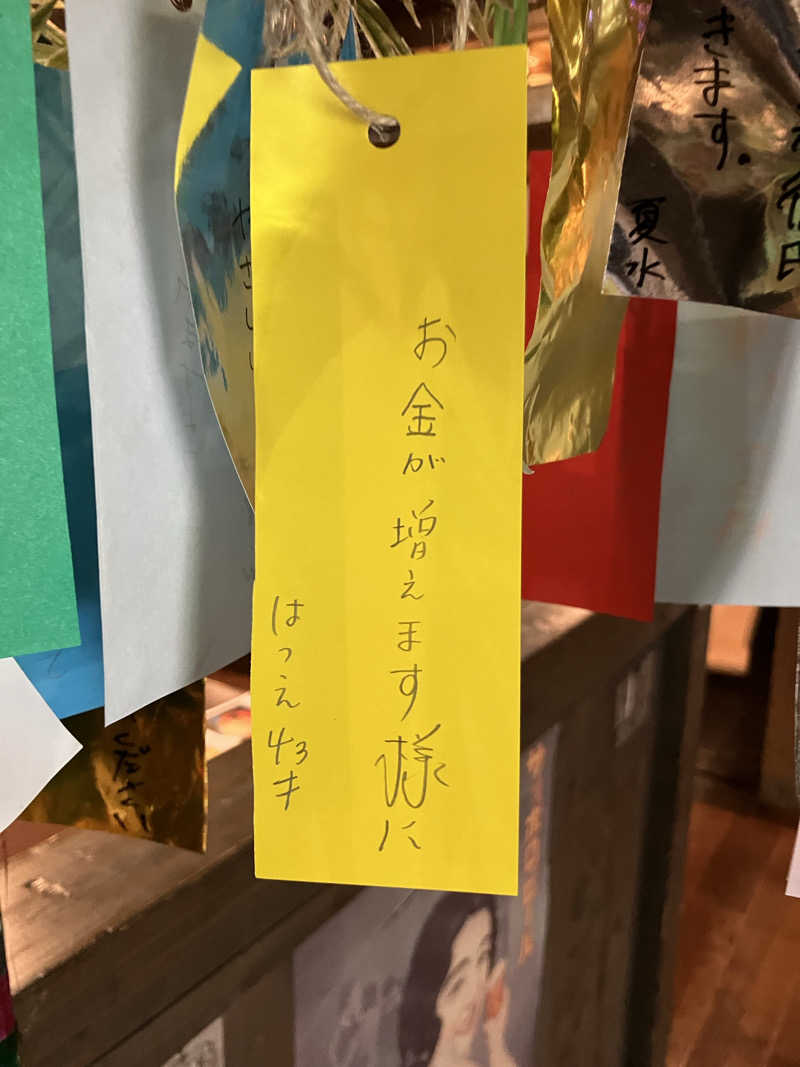 お金が増えます様に
はつえ 43才
きます。
夏水
やさしい
ださい